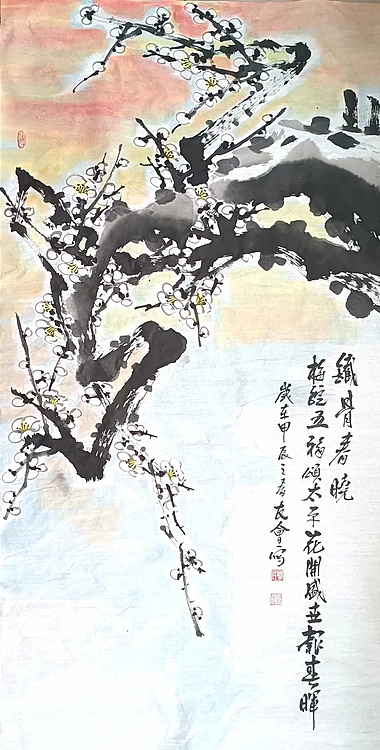 鐵骨春曉
梅綻五福頌太平花開盛世報春暉
歲在甲辰之春友會寫